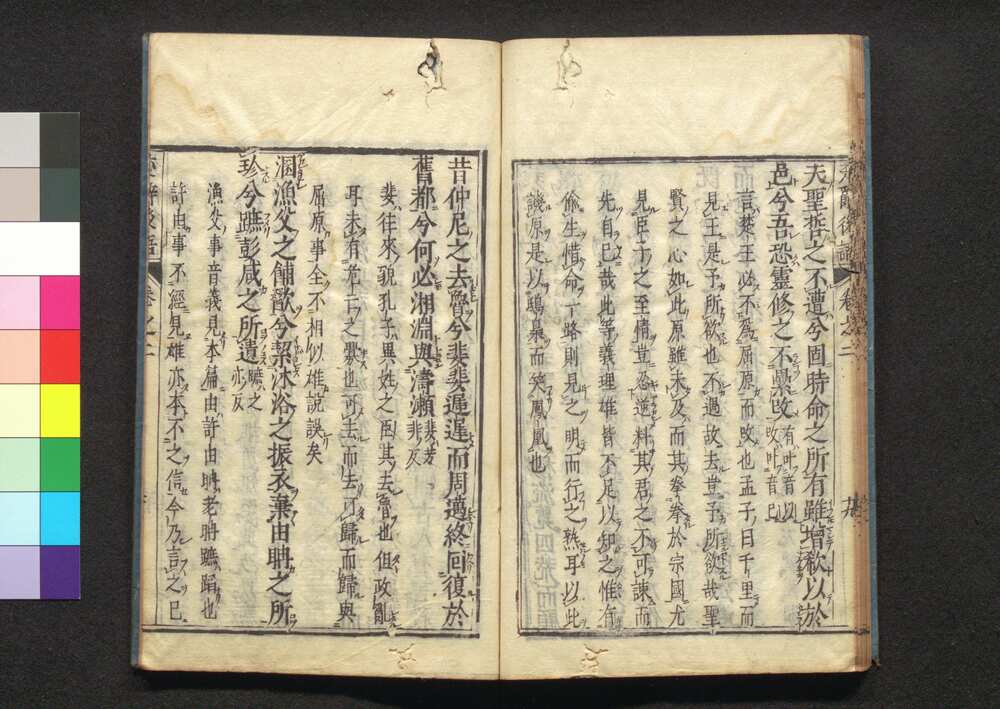 夫聖哲之不遭兮固時命之所有雖增欷以於
邑兮吾恐靈修之不纍改有叶音以改叶音上
言楚王必不為屈原而改也孟子曰千里而
見王是予所欲也不遇故去豈予所欲哉聖
賢之心如此原雖未及而其拳拳於宗國尤
見臣子之至情豈忍逆料其君之不可諫而
先自已哉此等義理雄皆不足以知之惟有
偷生惜命一路則見之明而行之熟耳以此
譏原是以鴟梟而笑鳳凰也
昔仲尼之去魯兮婓婓遲遲而周邁終回復於
舊都兮何必湘淵與濤瀨婓芳非反
婓往來貌孔子異姓之臣其去魯也但政亂
耳未有危亡之釁也可去而去可歸而歸與
屈原事全不相似雄說誤矣
溷漁父之餔歠兮絜沐浴之振衣棄由聃之所
珍兮蹠彭咸之所遺蹠之亦反
漁父事音義見本篇由許由聃老聃蹠蹈也
許由事不經見雄亦本不之信今乃言之已